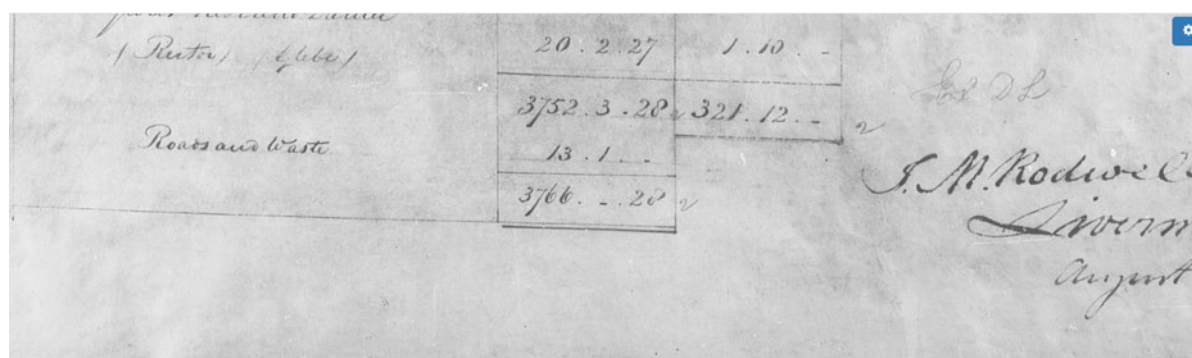 (Rector) (Glebe) 20 . 2 . 27 1 . 10 . -
3752 . 3 . 28 321 . 12 . -
Roads and Waste 13 . 1 . -
3766 . - . 28
J. M. Rodwell
August